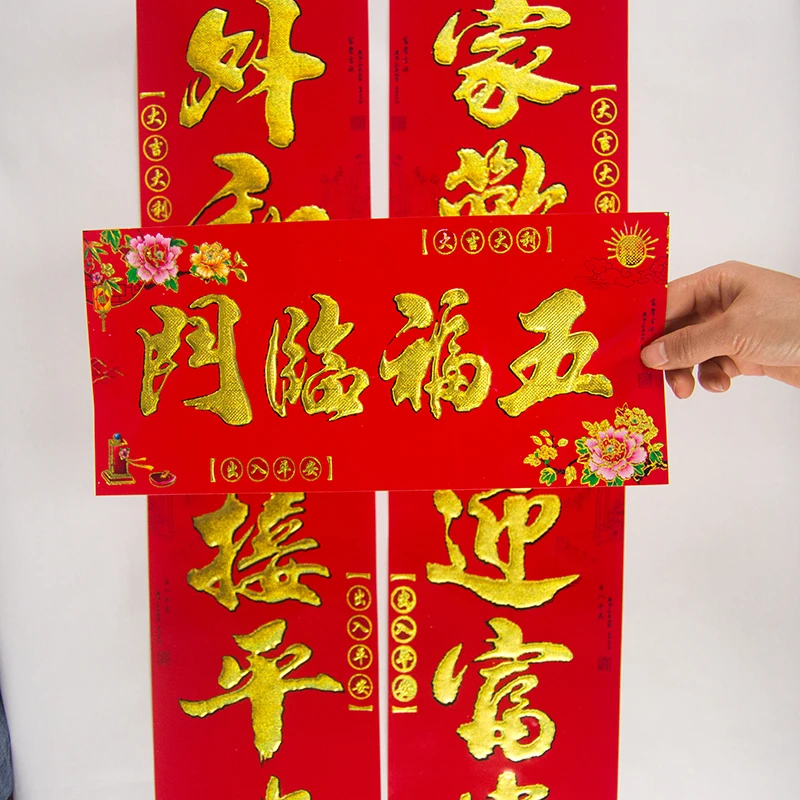 【大吉大利】
五福臨門
【出入平安】
家
迎富
【大吉大利
【出入平安】
外
接平
【大吉大利
【出入平安】